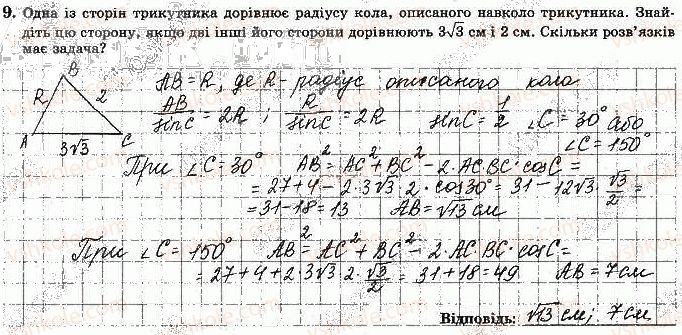 9. Одна із сторін трикутника дорівнює радіусу кола, описаного навколо трикутника. Знай-
діть цю сторону, якщо дві інші його сторони дорівнюють 3√3 см і 2 см. Скільки розв'язків
має задача?
B
R 2
A C
3√3
AB = R, де R - радіус описаного кола
AB/sinC = 2R ; R/sinC = 2R sinC = 1/2 ∠C = 30° або
∠C = 150°
При ∠C = 30° AB² = AC² + BC² - 2·AC·BC·cosC =
= 27 + 4 - 2·3√3·2·cos30° = 31 - 12√3·√3/2 =
= 31 - 18 = 13 AB = √13 см
При ∠C = 150° AB² = AC² + BC² - 2·AC·BC·cosC =
= 27 + 4 + 2·3√3·2·√3/2 = 31 + 18 = 49 AB = 7 см
Відповідь: √13 см; 7 см